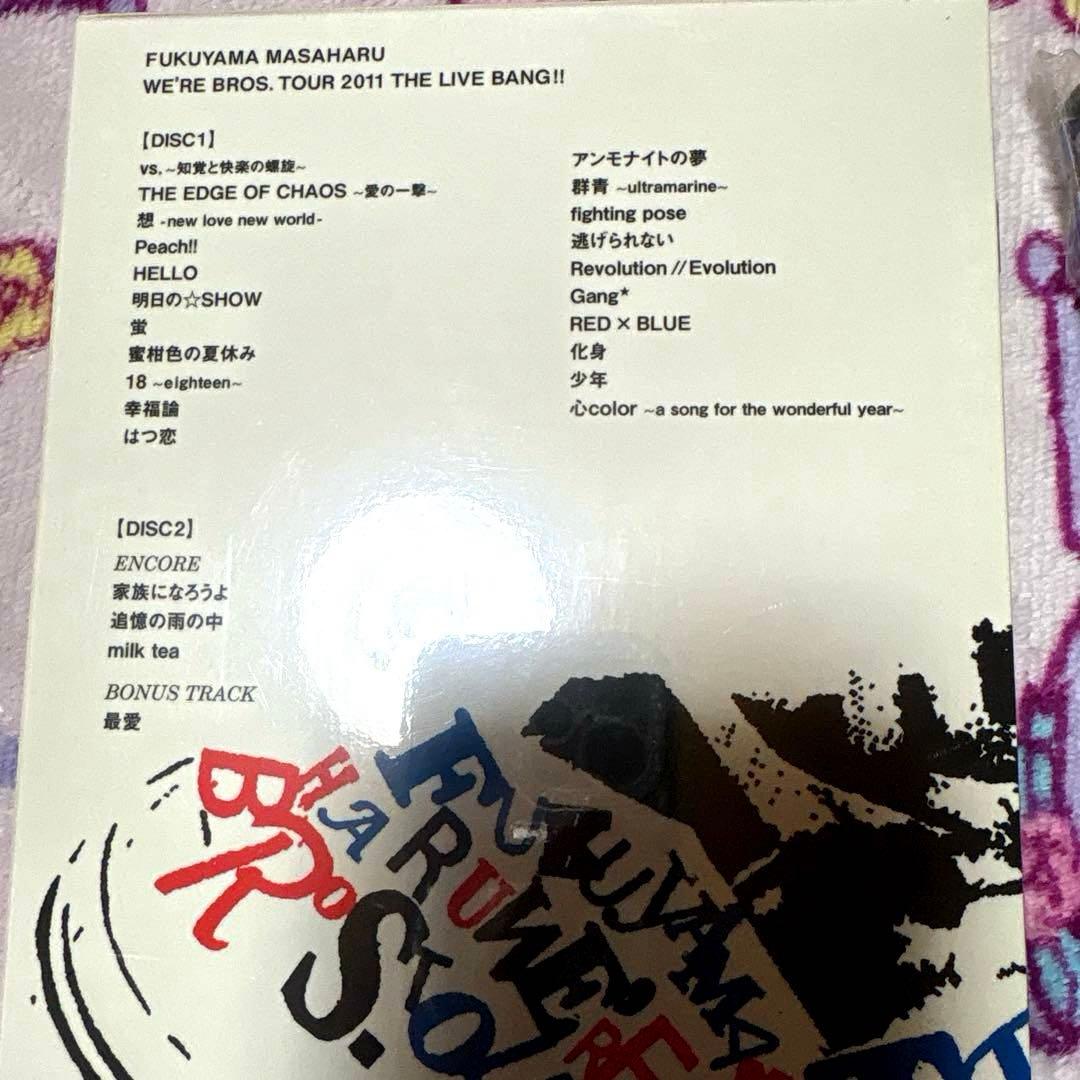 FUKUYAMA MASAHARU
WE'RE BROS. TOUR 2011 THE LIVE BANG!!
【DISC1】
vs. ~知覚と快楽の螺旋~
THE EDGE OF CHAOS ~愛の一撃~
想 -new love new world-
Peach!!
HELLO
明日の☆SHOW
蛍
蜜柑色の夏休み
18 ~eighteen~
幸福論
はつ恋
アンモナイトの夢
群青 ~ultramarine~
fighting pose
逃げられない
Revolution//Evolution
Gang★
RED×BLUE
化身
少年
心color ~a song for the wonderful year~
【DISC2】
ENCORE
家族になろうよ
追憶の雨の中
milk tea
BONUS TRACK
最愛
FUKUYAMA
HARU
WE'RE
BROS.